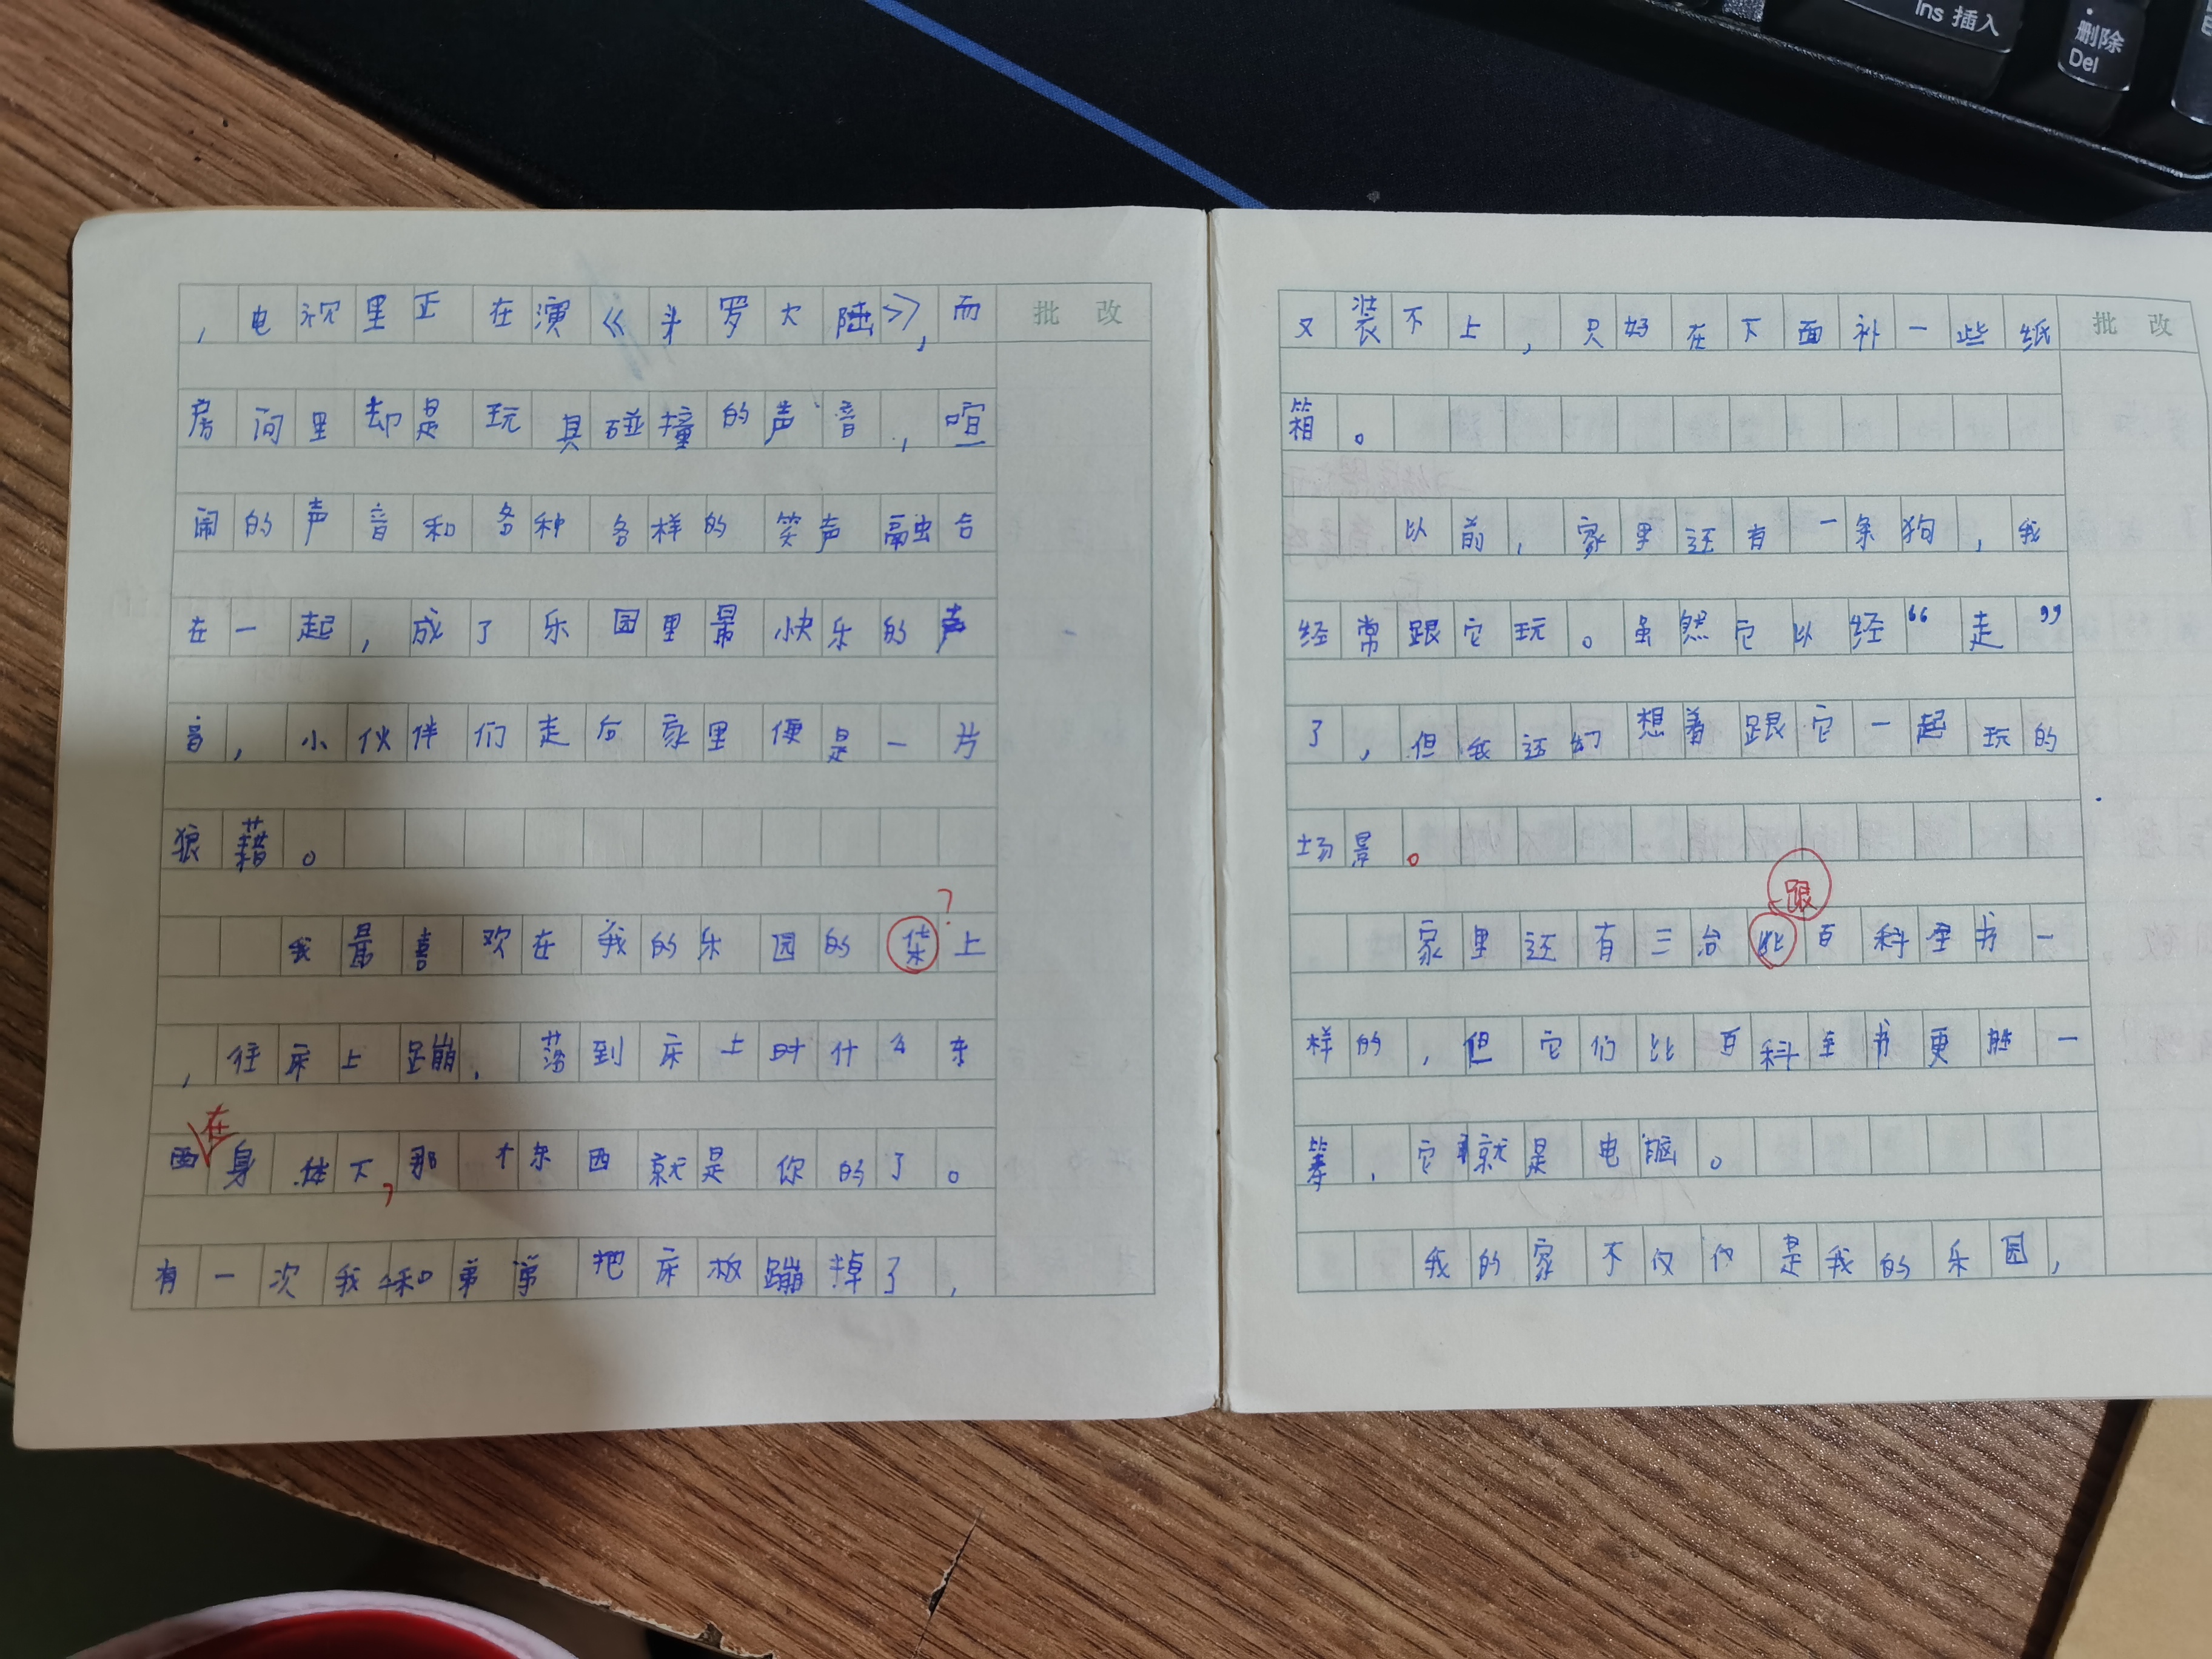 Ins 插入
删除
Del
批 改
，电视里正在演《斗罗大陆》，而
房间里却是玩具碰撞的声音，喧
闹的声音和各种各样的笑声融合
在一起，成了乐园里最快乐的声
音，小伙伴们走后家里便是一片
狼藉。
?
我最喜欢在我的乐园的上
，往床上蹦，落到床上时什么东
在
西身体下，那个东西就是你的了。
有一次我和弟弟把床板蹦掉了，
批 改
又装不上，只好在下面补一些纸
箱。
以前，家里还有一条狗，我
经常跟它玩。虽然它以经“走”
了，但我还幻想着跟它一起玩的
场景。
跟
家里还有三台比百科全书一
样的，但它们比百科全书更胜一
筹，它就是电脑。
我的家不仅仅是我的乐园，